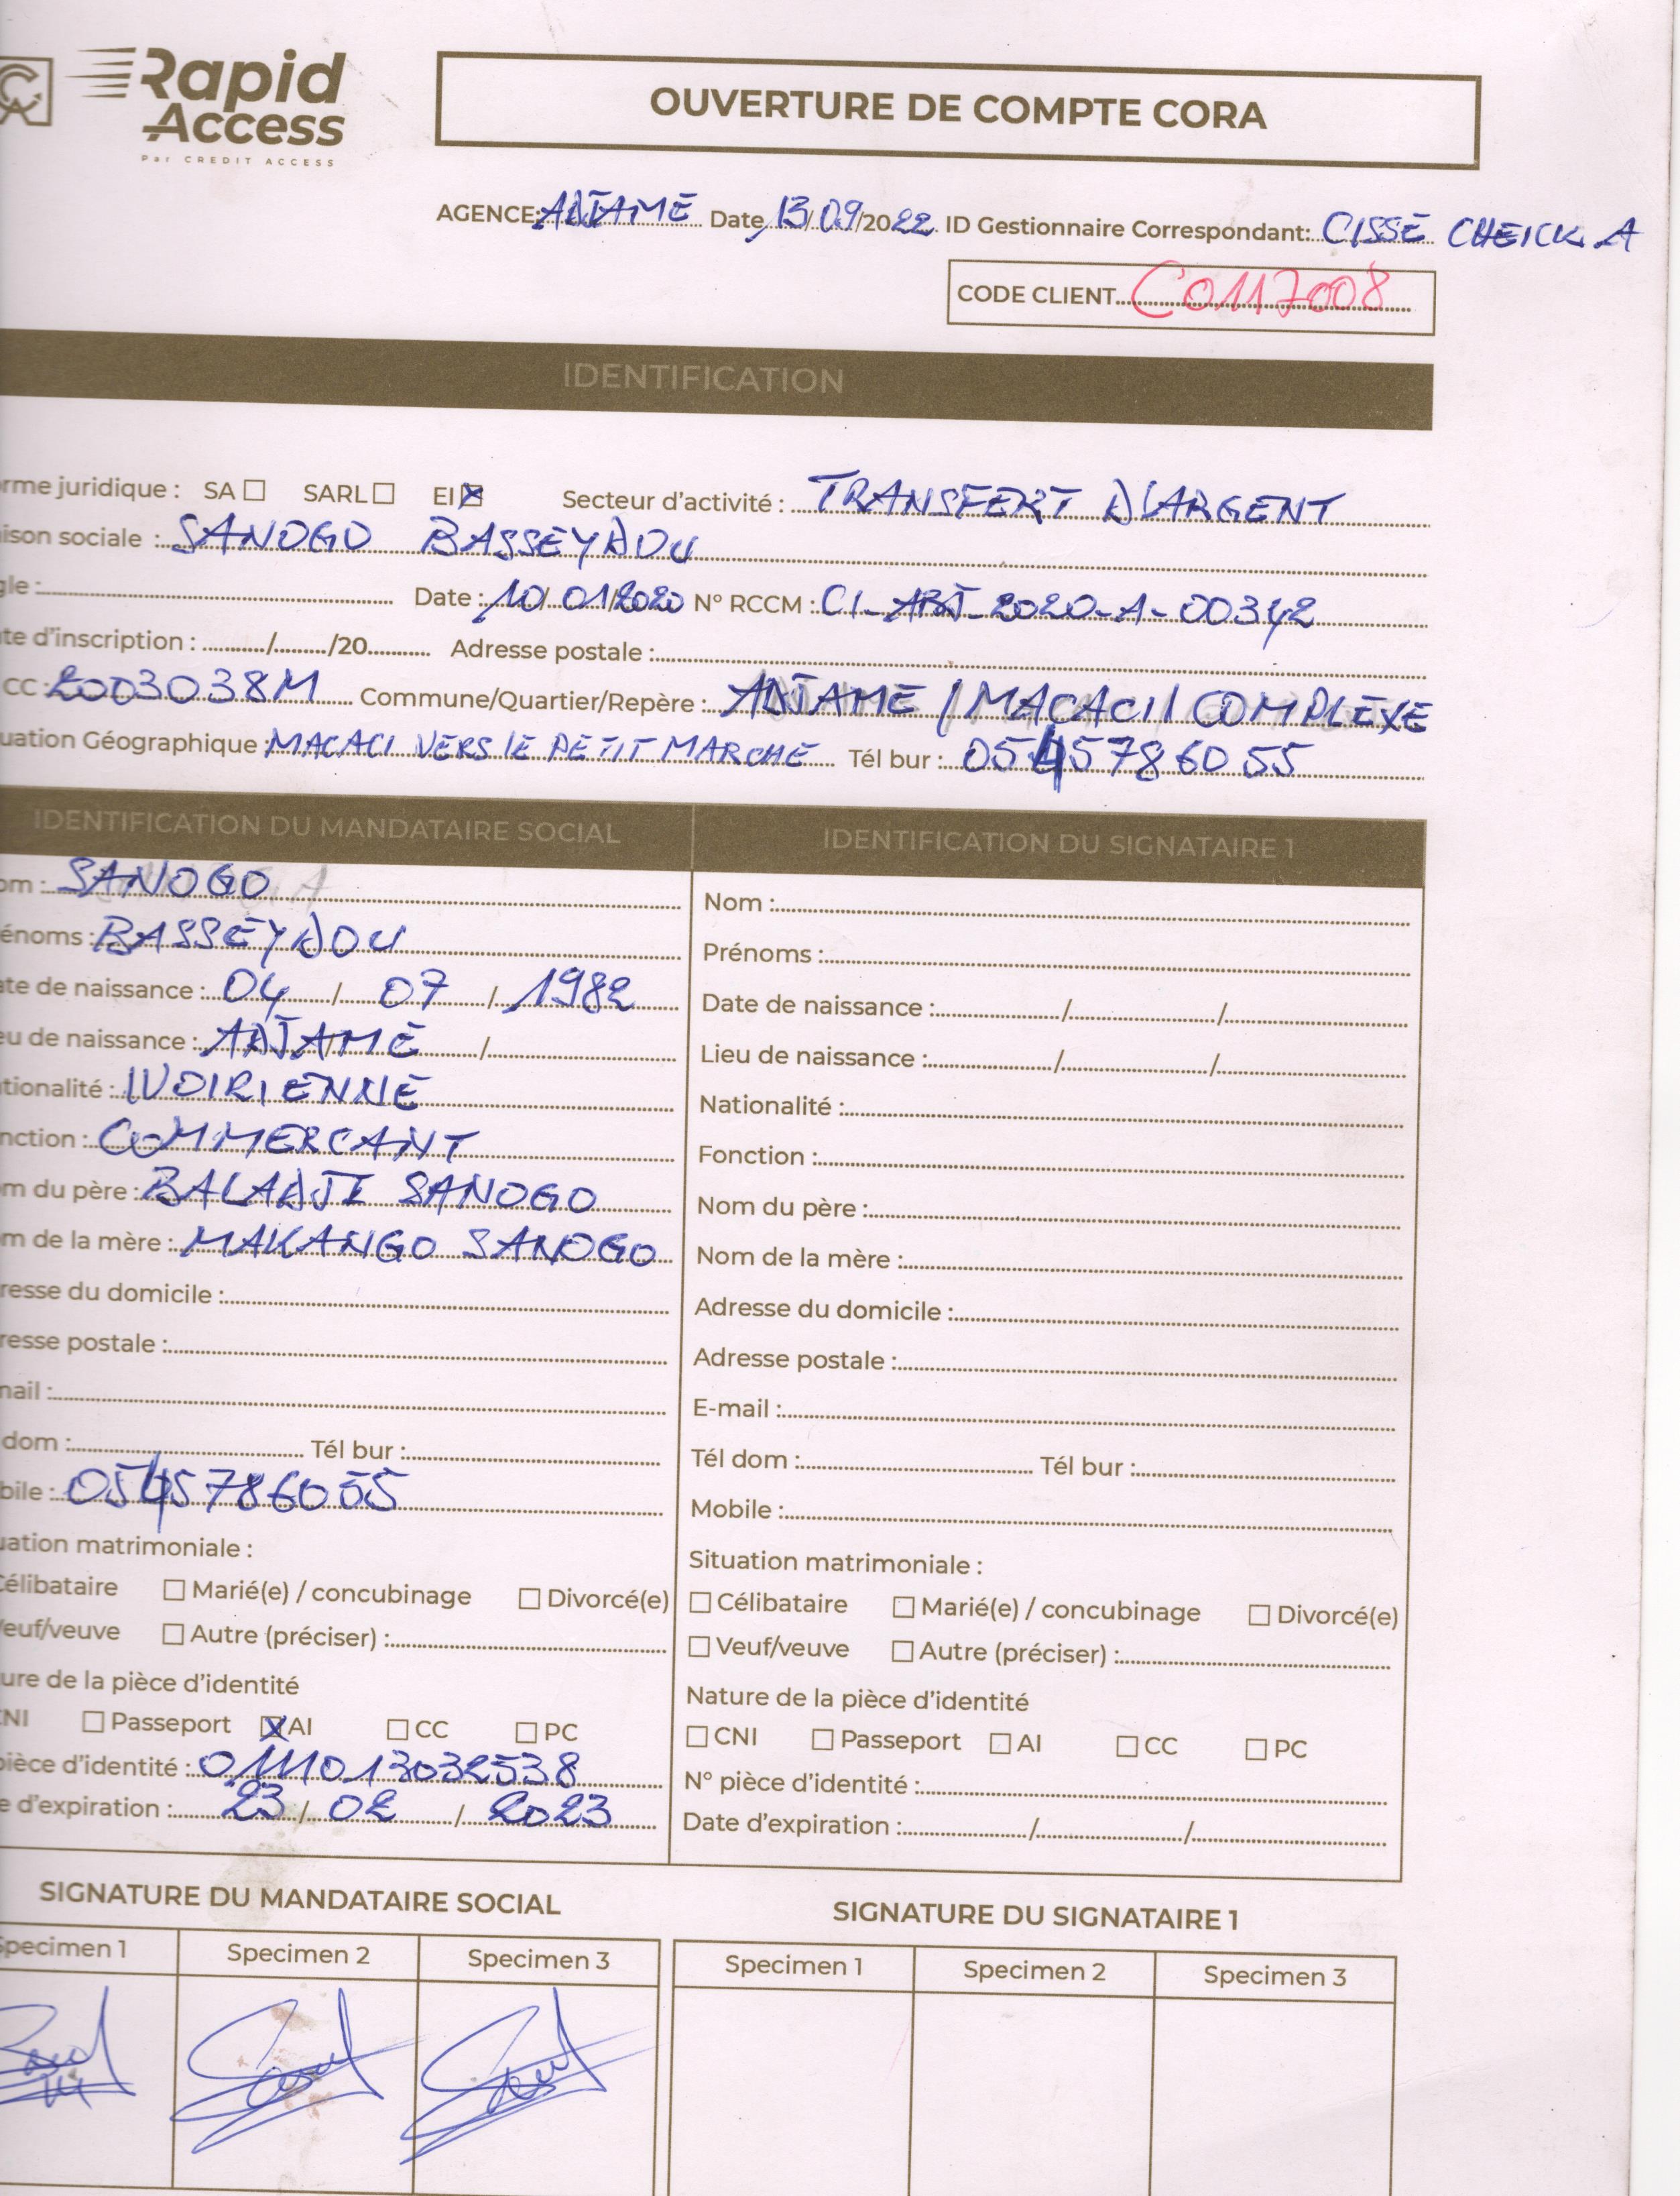 Rapid
Access
Par CREDIT ACCESS
OUVERTURE DE COMPTE CORA
AGENCE: ADJAME Date 13/09/2022 ID Gestionnaire Correspondant: CISSE CHEICK A
CODE CLIENT C0117008
IDENTIFICATION
rme juridique : SA ☐ SARL ☐ EI ☒ Secteur d'activité : TRANSFERT D'ARGENT
ison sociale : SANOGO BASSEYDOU
gle : Date : 10/01/2020 N° RCCM : CI-ABJ-2020-A-00342
te d'inscription : ........../........./20........... Adresse postale :
CC 2003038M Commune/Quartier/Repère : ADJAME / MACACI / COMPLEXE
uation Géographique : MACACI VERS LE PETIT MARCHE Tél bur : 0545786055
IDENTIFICATION DU MANDATAIRE SOCIAL
om : SANOGO
énoms : BASSEYDOU
ate de naissance : 04 / 07 / 1982
eu de naissance : ADJAME /
tionalité : IVOIRIENNE
nction : COMMERCANT
m du père : BALADJI SANOGO
m de la mère : MAKANGO SANOGO
resse du domicile :
resse postale :
mail :
dom : Tél bur :
bile : 0545786055
uation matrimoniale :
Célibataire ☐ Marié(e) / concubinage ☐ Divorcé(e)
Veuf/veuve ☐ Autre (préciser) :
ure de la pièce d'identité
NI ☐ Passeport ☒ AI ☐ CC ☐ PC
pièce d'identité : 0111013032538
e d'expiration : 23 / 02 / 2023
IDENTIFICATION DU SIGNATAIRE 1
Nom :
Prénoms :
Date de naissance : / /
Lieu de naissance : / /
Nationalité :
Fonction :
Nom du père :
Nom de la mère :
Adresse du domicile :
Adresse postale :
E-mail :
Tél dom : Tél bur :
Mobile :
Situation matrimoniale :
☐ Célibataire ☐ Marié(e) / concubinage ☐ Divorcé(e)
☐ Veuf/veuve ☐ Autre (préciser) :
Nature de la pièce d'identité
☐ CNI ☐ Passeport ☐ AI ☐ CC ☐ PC
N° pièce d'identité :
Date d'expiration : / /
SIGNATURE DU MANDATAIRE SOCIAL
Specimen 1 Specimen 2 Specimen 3
SIGNATURE DU SIGNATAIRE 1
Specimen 1 Specimen 2 Specimen 3